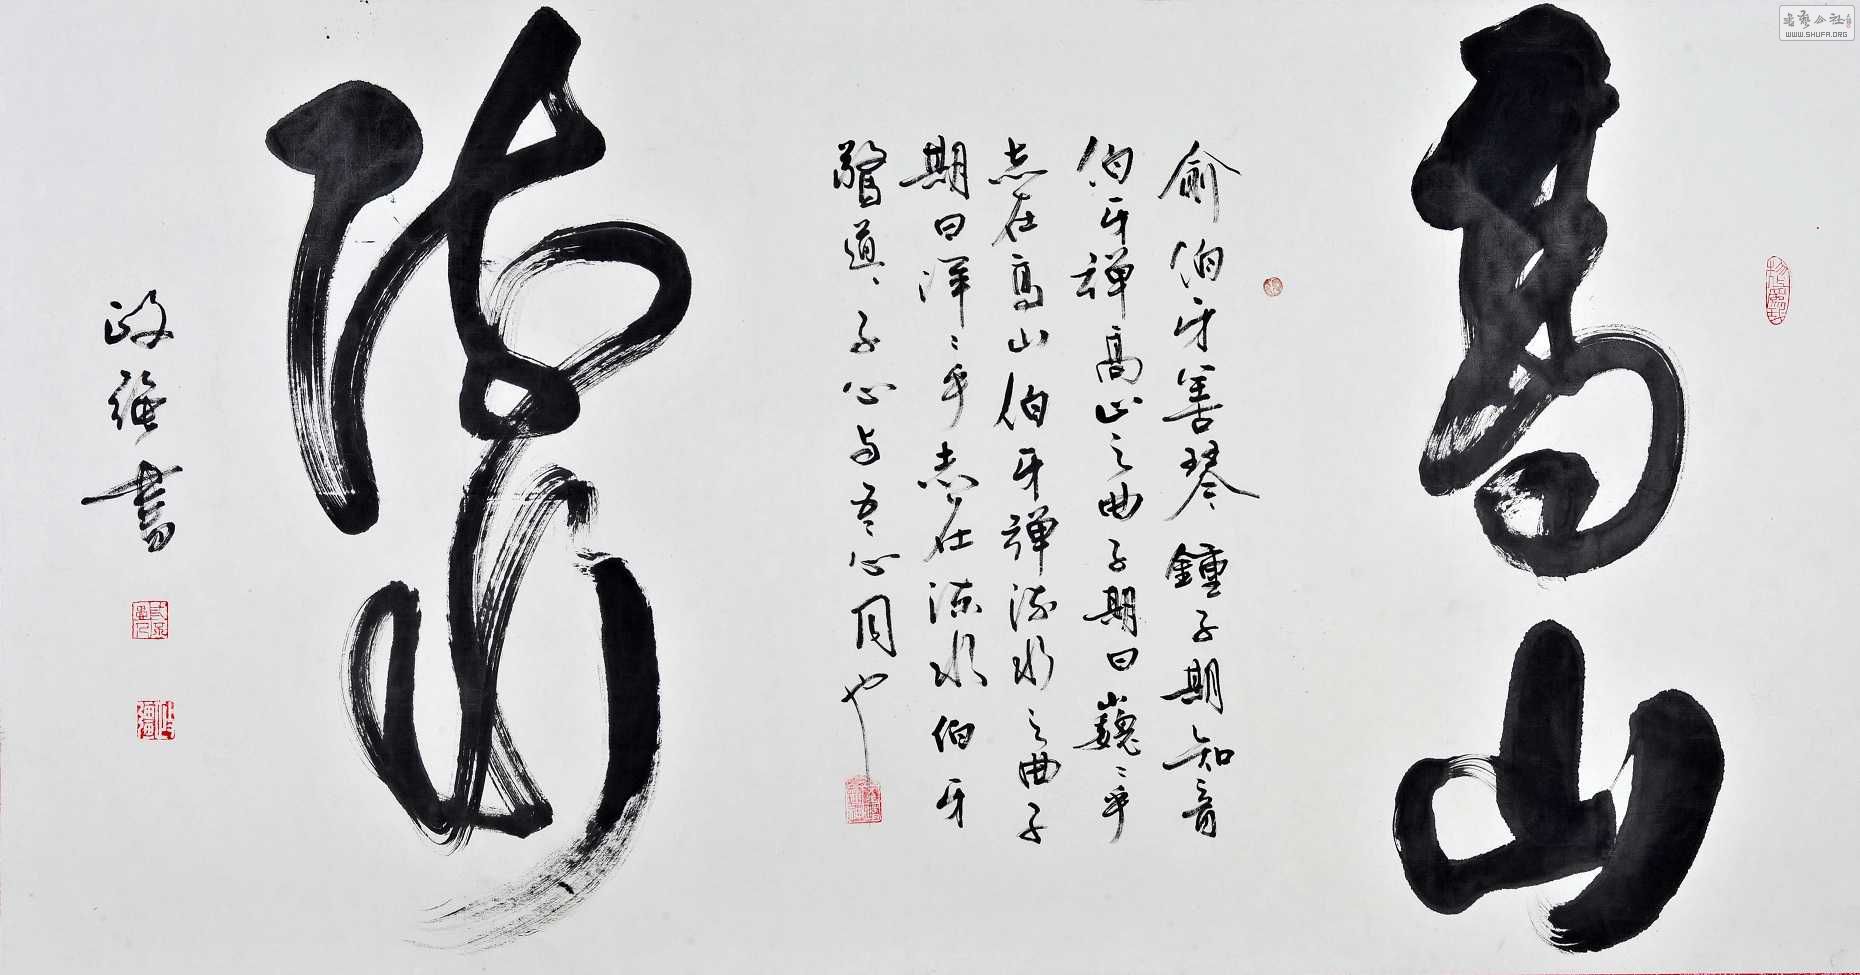 高山
俞伯牙善琴鍾子期知音
伯牙彈高山之曲子期曰巍〻乎
志在高山伯牙彈流水之曲子
期曰洋〻乎志在流水伯牙
驚道、子心与吾心同也
流水
政強書
書藝公社
WWW.SHUFA.ORG